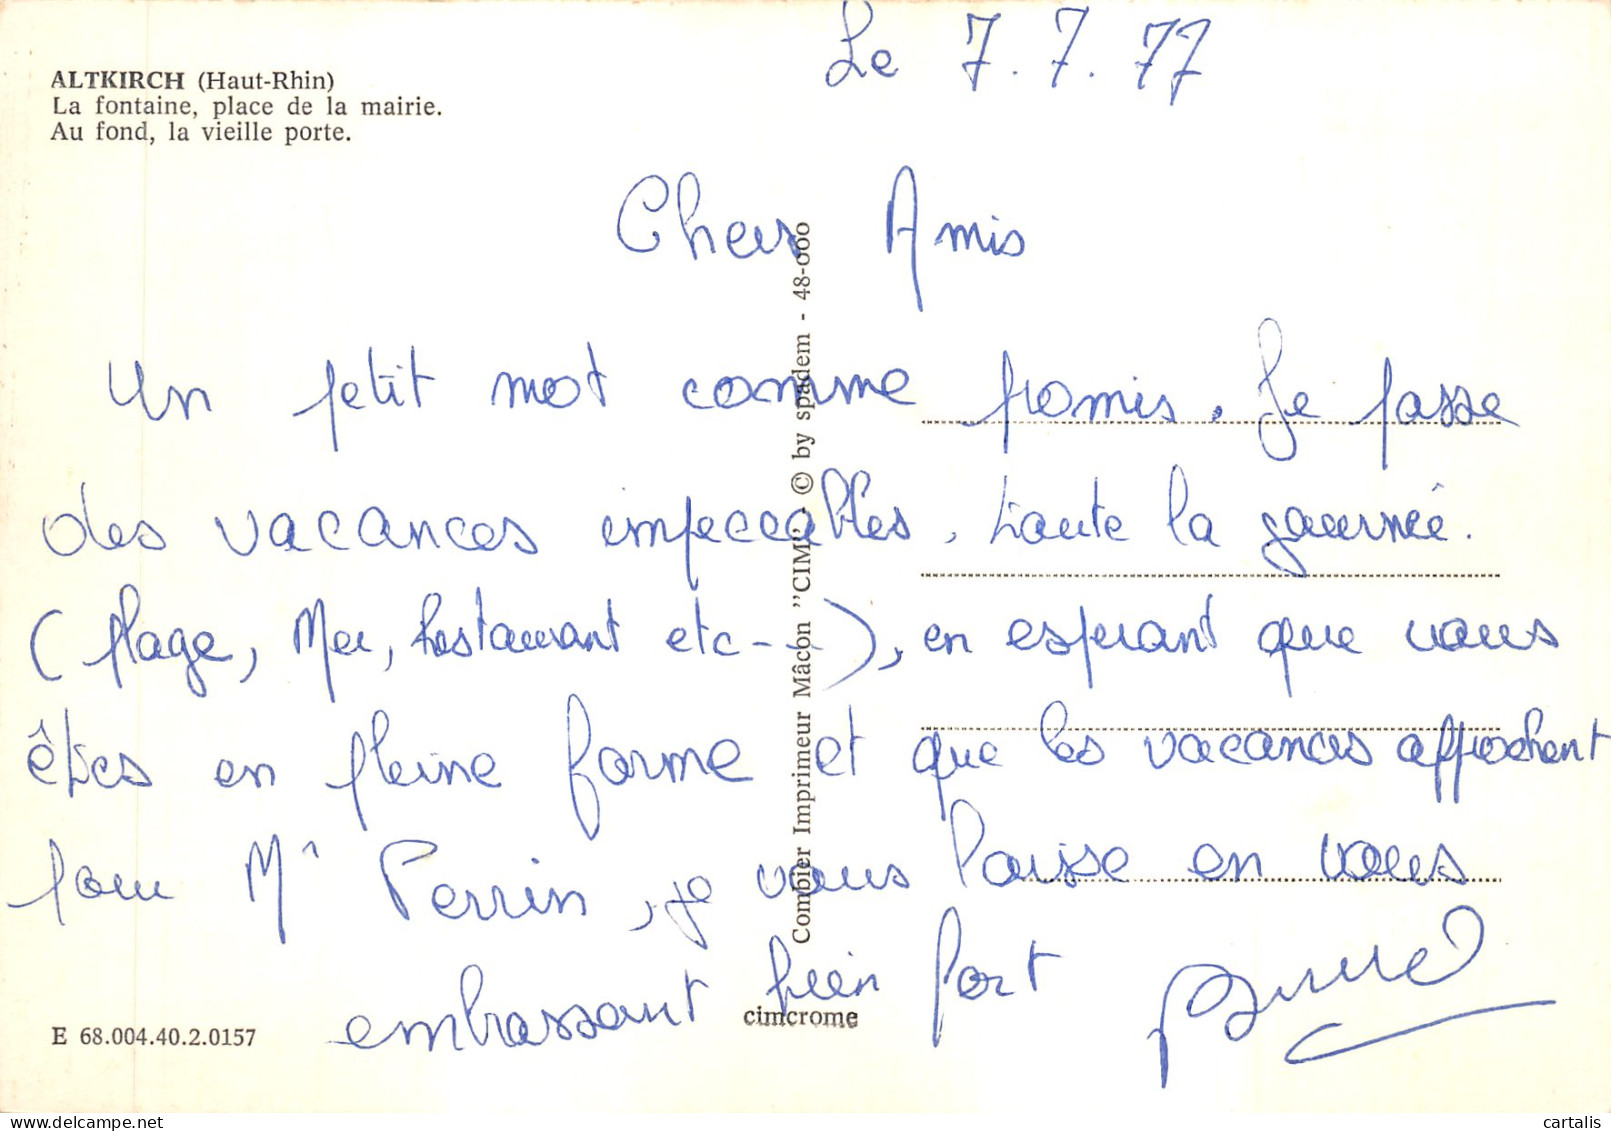 Le 7.7.77
ALTKIRCH (Haut-Rhin)
La fontaine, place de la mairie.
Au fond, la vieille porte.
Chers Amis
Un petit mot comme promis. Je passe
des vacances impeccables, toute la journée.
(plage, Mer, Restaurant etc--), en espérant que vous
êtes en pleine forme et que les vacances approchent
pour Mr Perrin, je vous laisse en vous
embrassant bien fort
Combier Imprimeur Mâcon "CIM" - © by spadem - 48-000
cimcrome
E 68.004.40.2.0157
cartalis